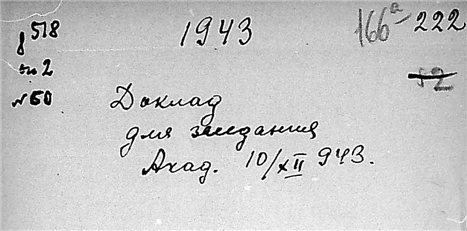 ф518
оп 2
№50
1943
166а 222
52
Доклад
для заседания
Акад. 10/XII 943.